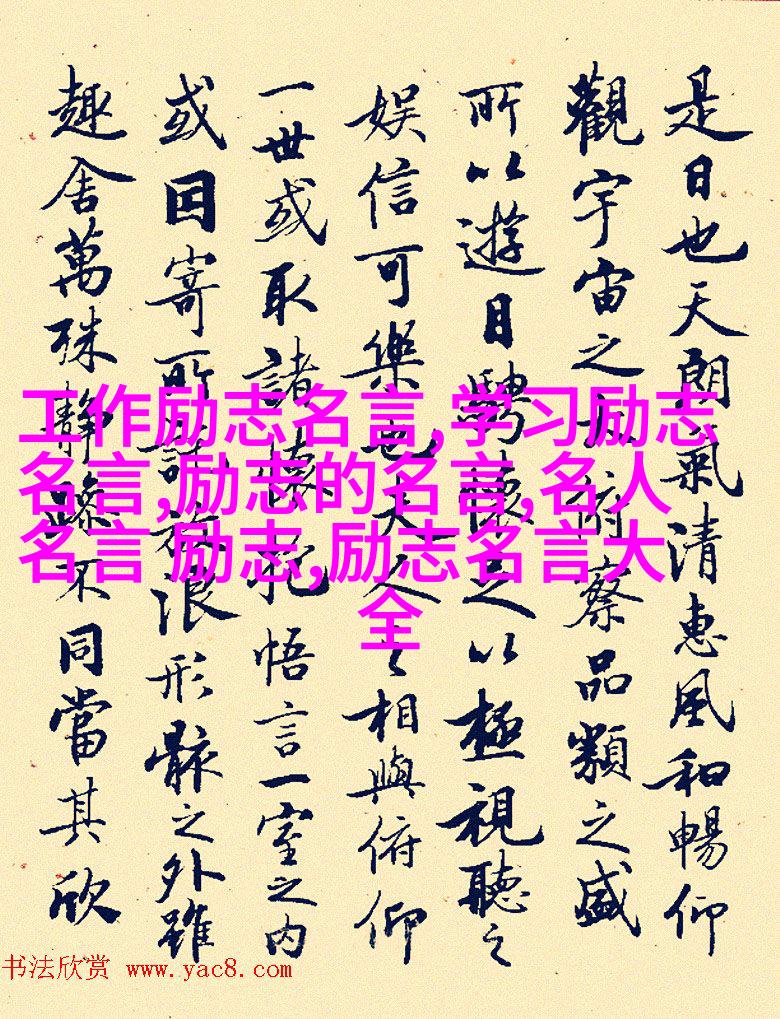 是日也天朗氣清惠風和暢仰
觀宇宙之大俯察品類之盛
所以遊目騁懷足以極視聽之
娱信可樂也夫人之相與俯仰
一世或取諸懷抱悟言一室之内
或因寄所託放浪形骸之外雖
趣舍萬殊静躁不同當其欣
工作励志名言,学习励志
名言,励志的名言,名人
名言 励志,励志名言大
全
书法欣赏 www.yac8.com